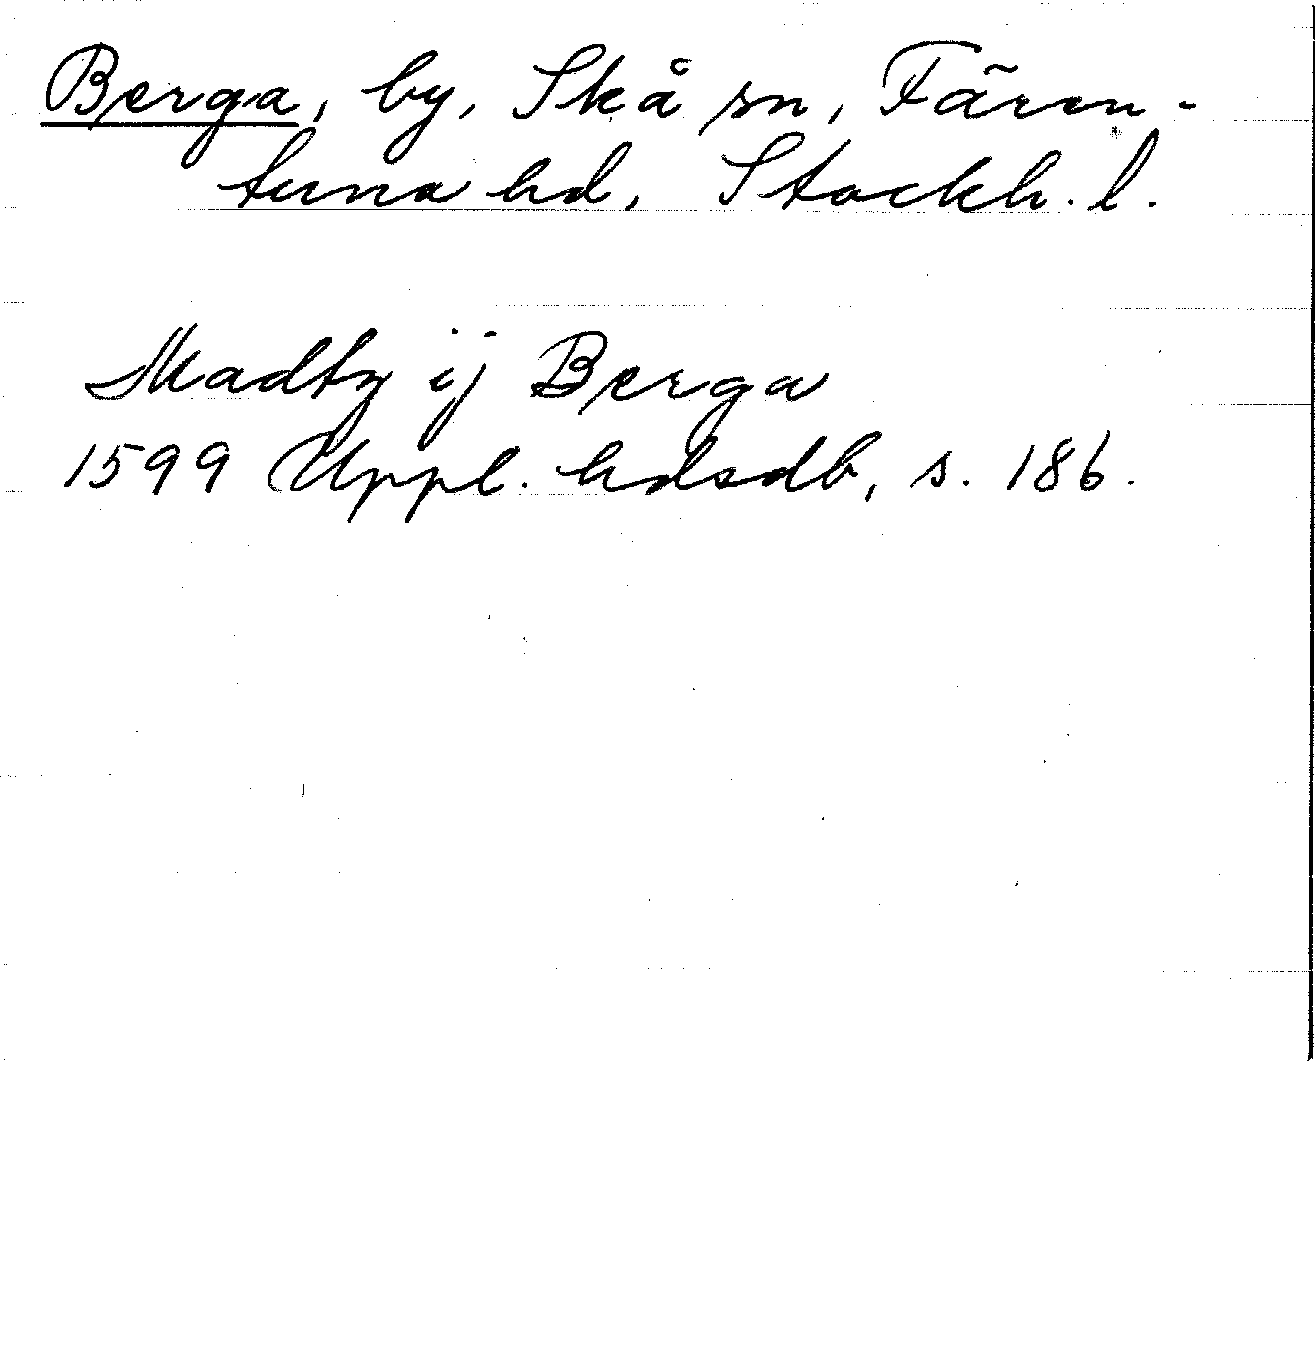 Berga, by, Skå sn, Fären-
tuna hd, Stockh. l.
Madtz ij Berga
1599 Uppl. hdsdb, s. 186.